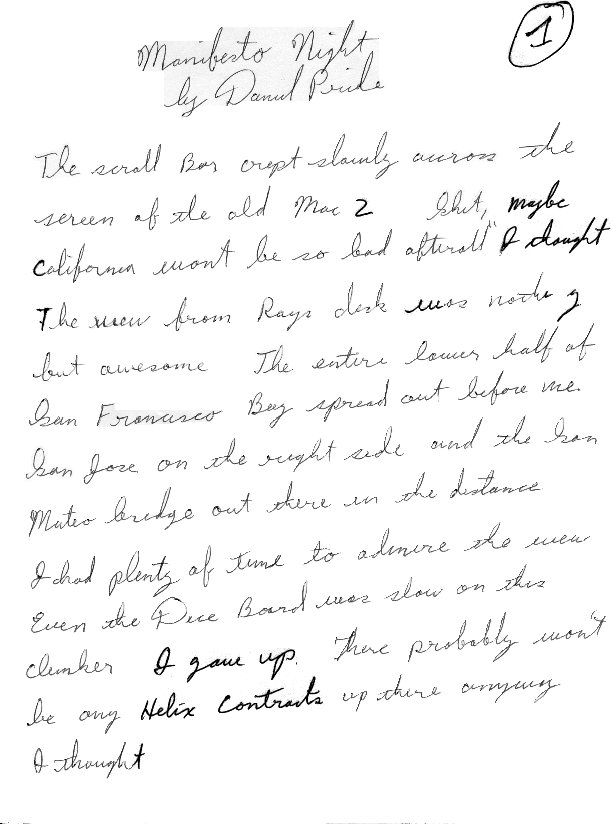 1
Manifesto Night
by Danul Pride
The scroll Bar crept slowly across the
screen of the old Mac 2 Shit, maybe
California wont be so bad afterall" I thought
The view from Rays desk was nothing
but awesome The entire lower half of
San Francisco Bay spread out before me.
San Jose on the right side and the San
Mateo bridge out there in the distance
I had plenty of time to admire the view
Even the Dice Board was slow on this
clunker I gave up. There probably won't
be any Helix Contracts up there anyway
I thought